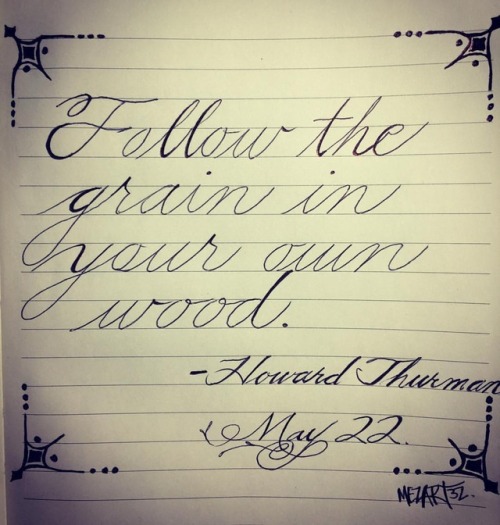 Follow the
grain in
your own
wood.
-Howard Thurman
May 22.
MEZART32.